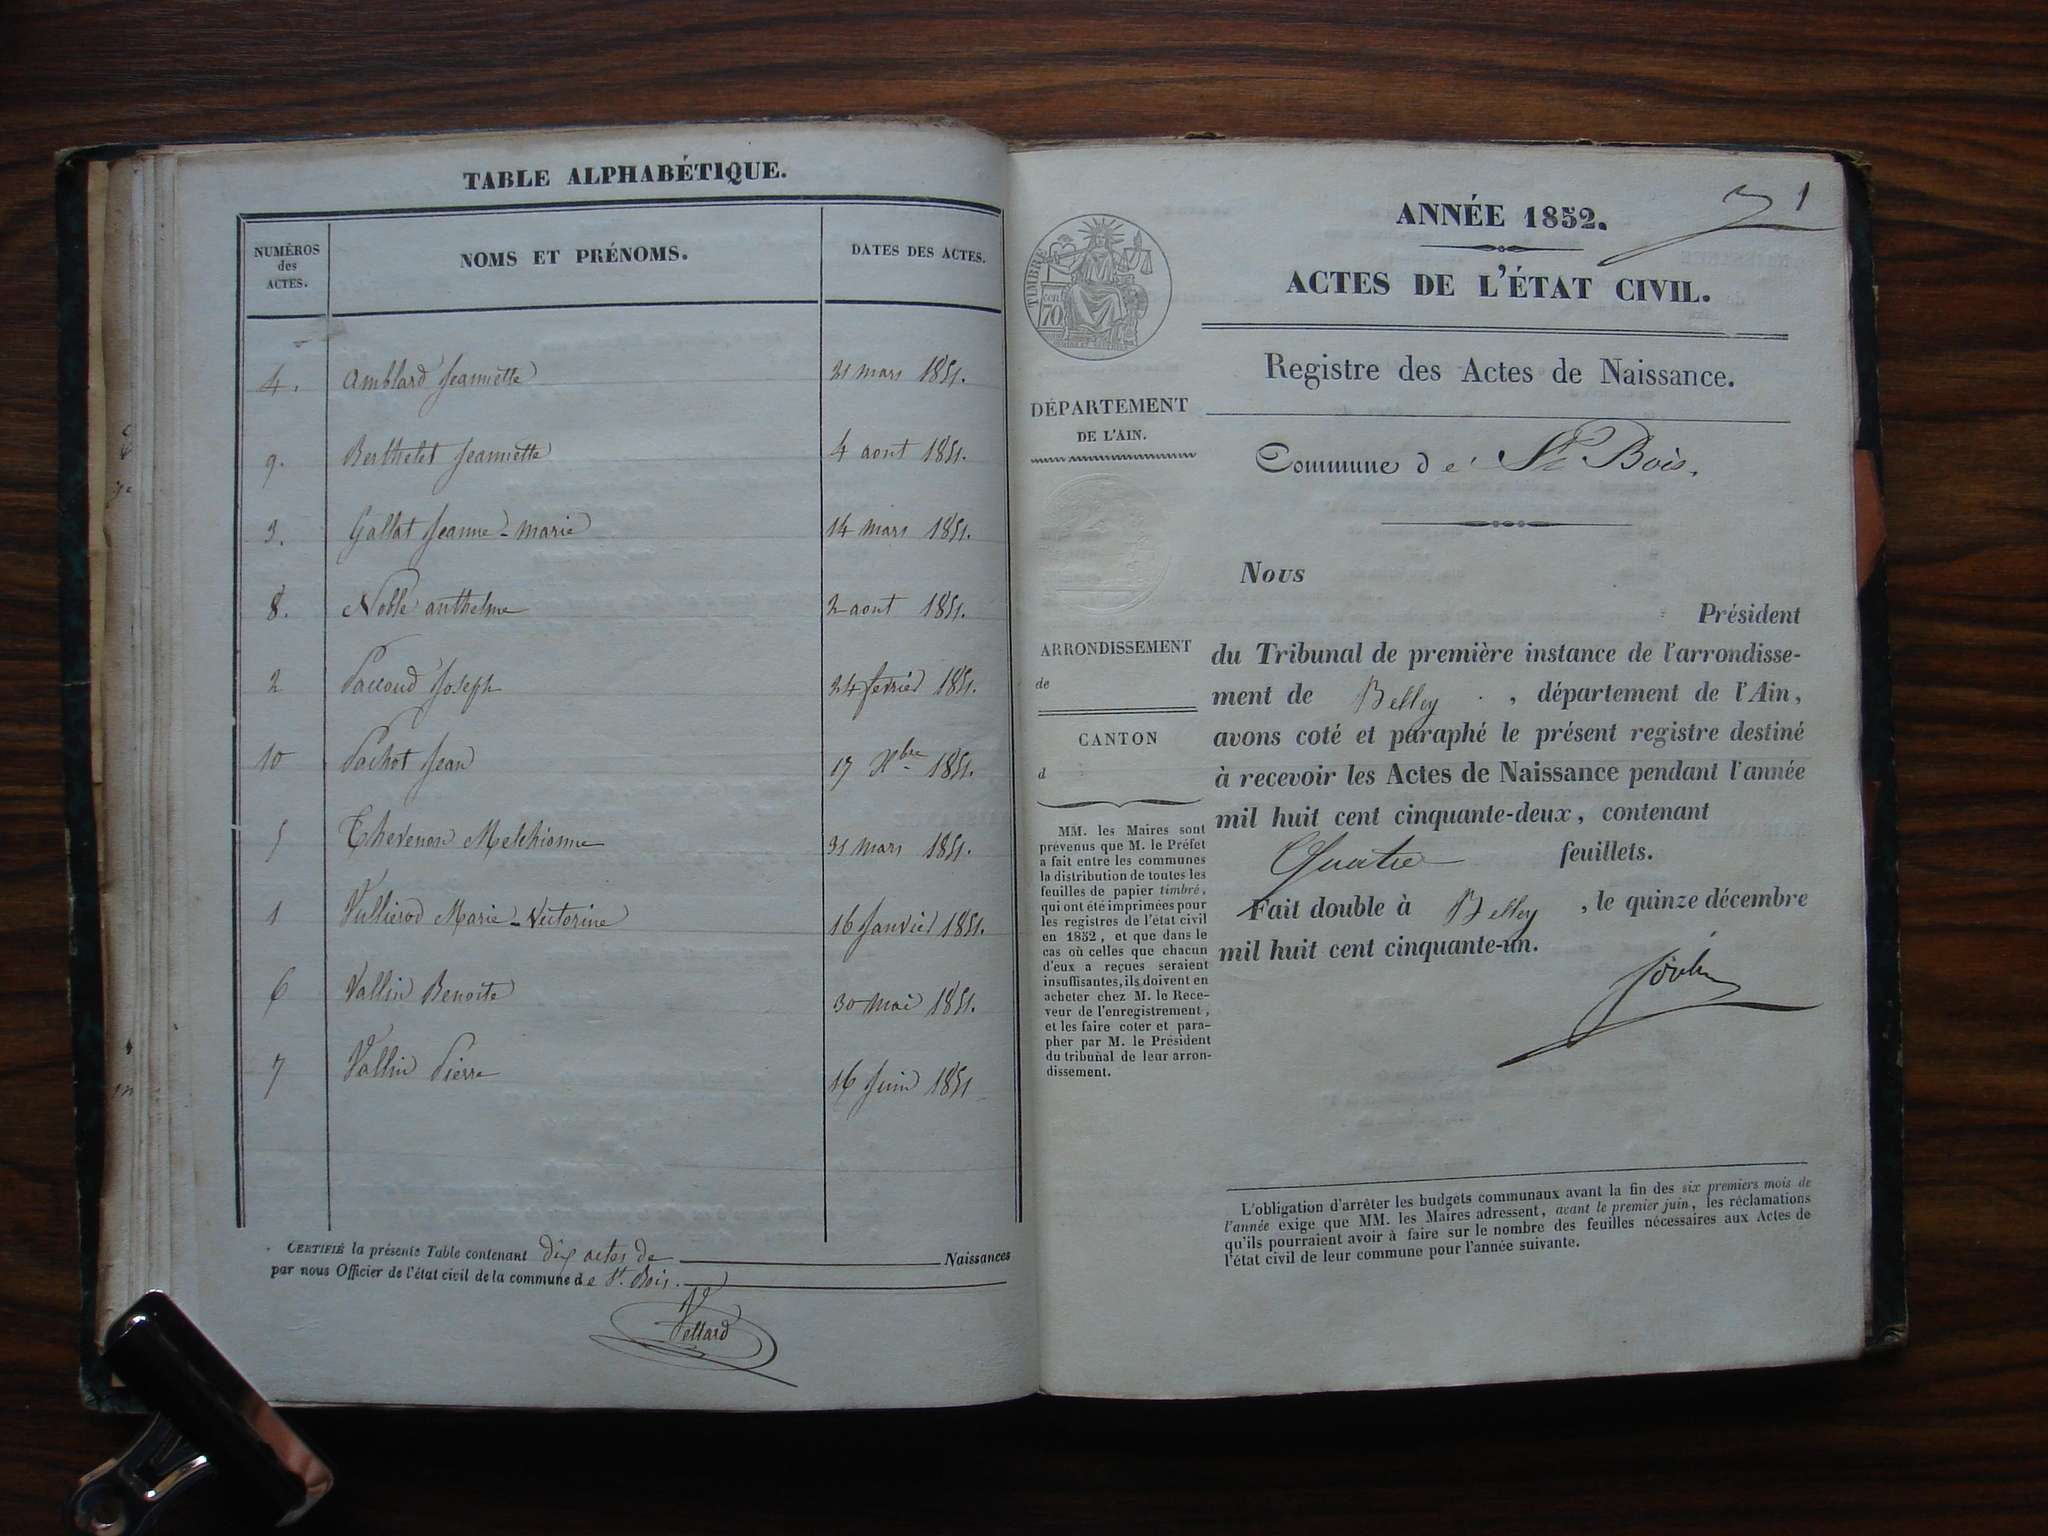 TABLE ALPHABÉTIQUE.
NUMÉROS
des
ACTES.
NOMS ET PRÉNOMS.
DATES DES ACTES.
4. Amblard Jeannette 21 mars 1851.
9. Berthelet Jeannette 4 aout 1851.
3. Gallat Jeanne-marie 14 mars 1851.
8. Noble anthelme 2 aout 1851.
2 Paccoud Joseph 24 fevrier 1851.
10 Pochot Jean 17 Xbre 1851.
5 Thevenon Melchionne 31 mars 1851.
1 Vullierod Marie-Victorine 16 Janvier 1851.
6 Vallin Benoite 30 mai 1851.
7 Vallin Pierre 16 Juin 1851
CERTIFIÉ la présente Table contenant dix actes de Naissances
par nous Officier de l'état civil de la commune de St. Bois.
Vettard
1
ANNÉE 1852.
ACTES DE L'ÉTAT CIVIL.
Registre des Actes de Naissance.
Commune de St Bois.
TIMBRE
cen
70
DÉPARTEMENT
DE L'AIN.
ARRONDISSEMENT
de
CANTON
d
MM. les Maires sont
prévenus que M. le Préfet
a fait entre les communes
la distribution de toutes les
feuilles de papier timbré,
qui ont été imprimées pour
les registres de l'état civil
en 1852, et que dans le
cas où celles que chacun
d'eux a reçues seraient
insuffisantes, ils doivent en
acheter chez M. le Rece-
veur de l'enregistrement,
et les faire coter et para-
pher par M. le Président
du tribunal de leur arron-
dissement.
Nous
Président
du Tribunal de première instance de l'arrondisse-
ment de Belley, département de l'Ain,
avons coté et paraphé le présent registre destiné
à recevoir les Actes de Naissance pendant l'année
mil huit cent cinquante-deux, contenant
Quatre feuillets.
Fait double à Belley, le quinze décembre
mil huit cent cinquante-un.
L'obligation d'arrêter les budgets communaux avant la fin des six premiers mois de
l'année exige que MM. les Maires adressent, avant le premier juin, les réclamations
qu'ils pourraient avoir à faire sur le nombre des feuilles nécessaires aux Actes de
l'état civil de leur commune pour l'année suivante.